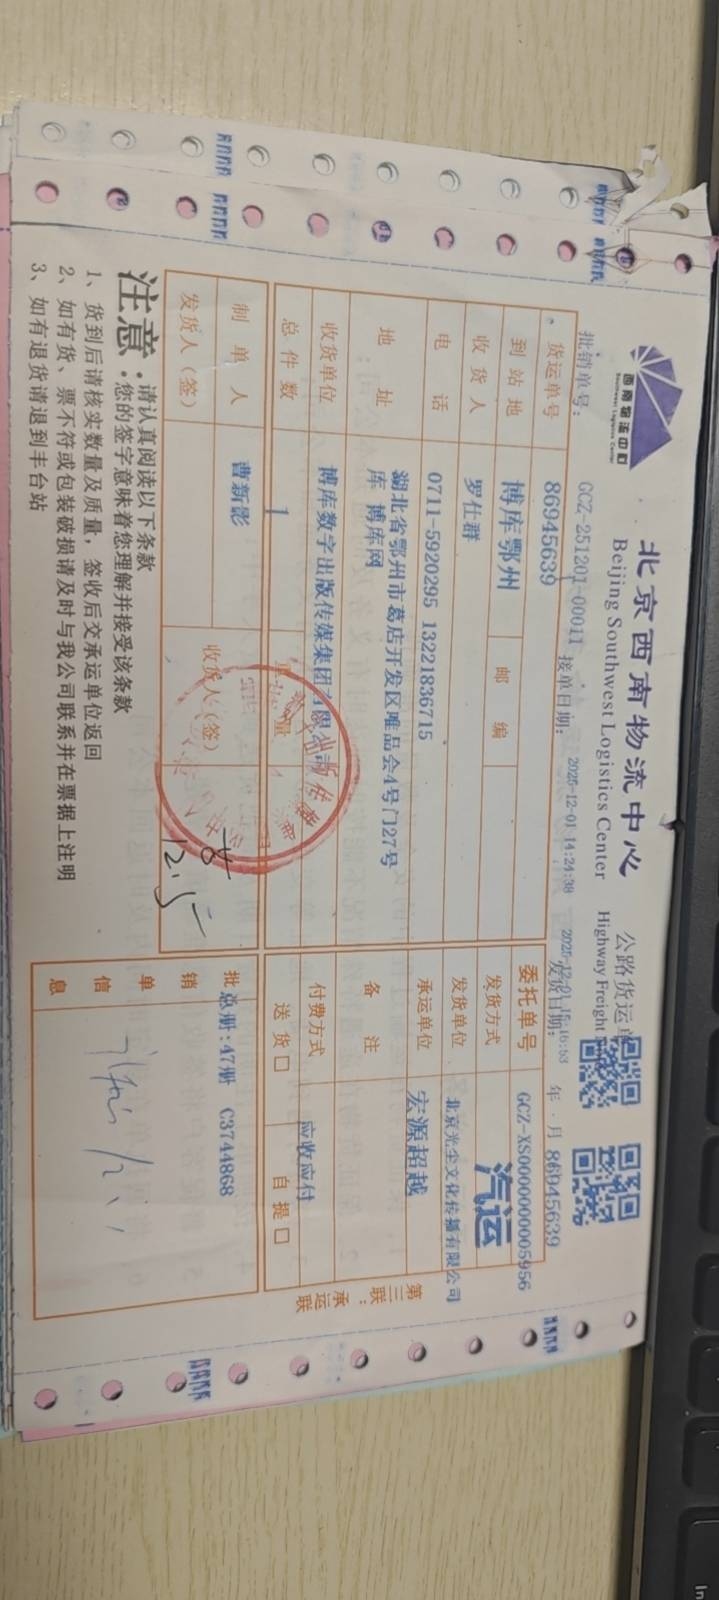 西南物流中心
Southwest Logistics Center
北京西南物流中心
Beijing Southwest Logistics Center
公路货运单
Highway Freight
批销单号： GCZ-251201-00011 接单日期： 2025-12-01 14:24:38 发货日期： 2025-12-01 15:16:53 年 月 86945639
货运单号 86945639
委托单号 GCZ-XS0000000005956
到站地 博库鄂州 邮编
发货方式 汽运
收货人 罗仕群
发货单位 北京光尘文化传播有限公司
电话 0711-5920295 13221836715
承运单位 宏源超越
地址 湖北省鄂州市葛店开发区唯品会4号门27号
库 博库网
备注
收货单位 博库数字出版传媒集团有限公司
付费方式 应收应付
总件数 1 重量
送货□ 自提□
制单人 曹新影
发货人（签）
收货人（签）
12.5
批销单信息
总册：47册 C3744868
第三联：承运联
注意： 请认真阅读以下条款
您的签字意味着您理解并接受该条款
1、货到后请核实数量及质量，签收后交承运单位返回
2、如有货、票不符或包装破损请及时与我公司联系并在票据上注明
3、如有退货请退到丰台站